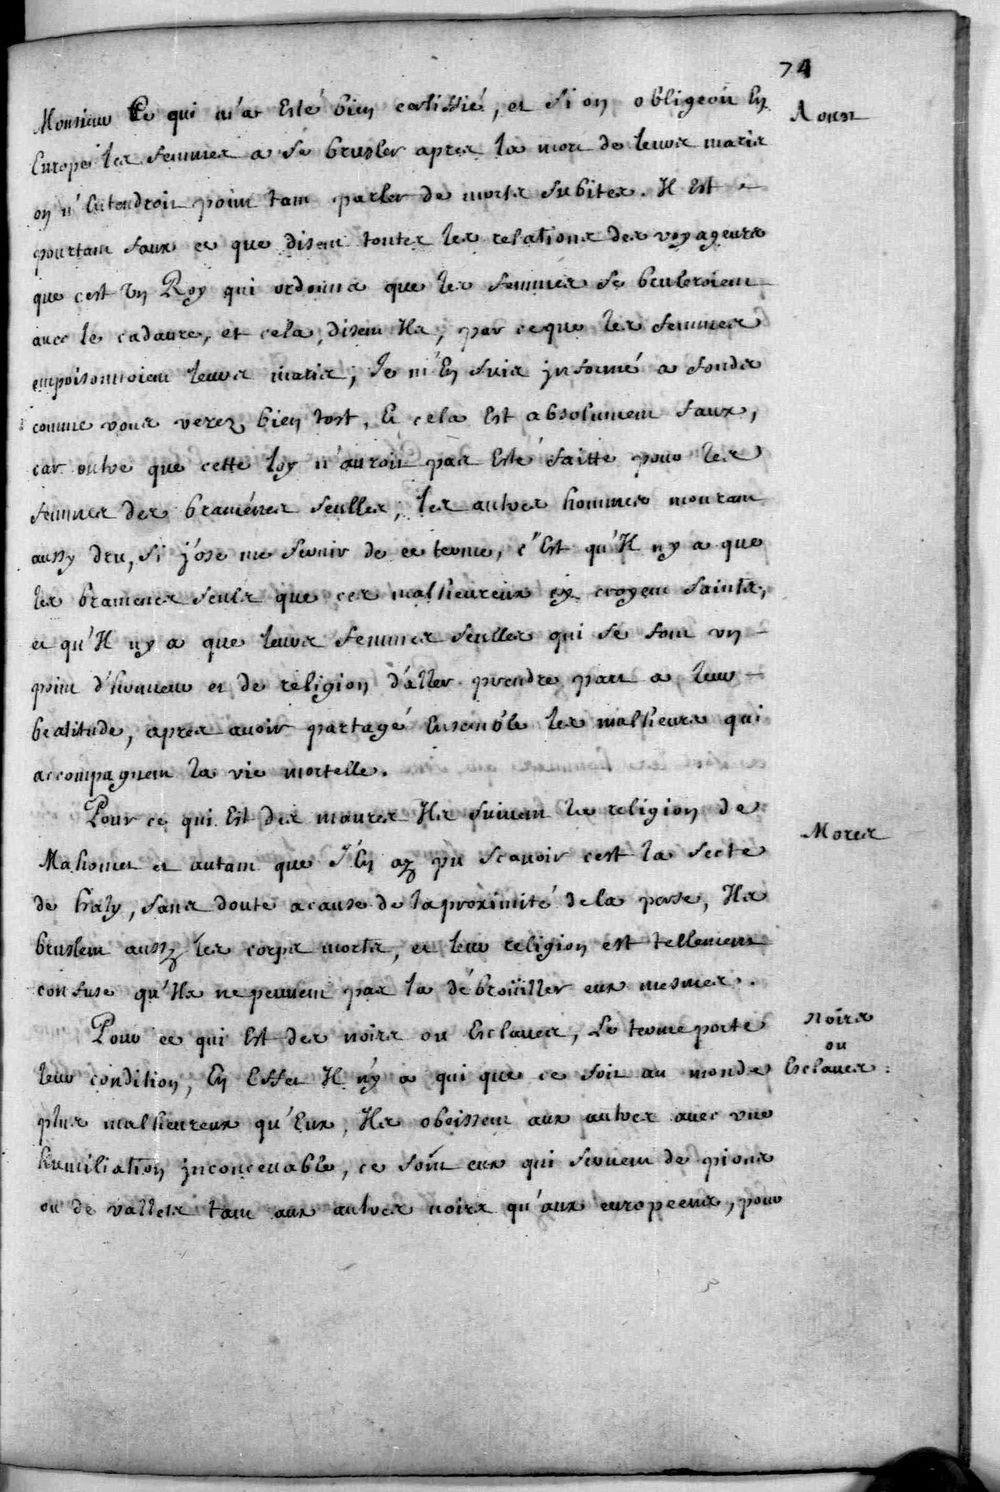 74
Monsieur Ce qui m'a Esté bien certiffié, et si on obligeoit En
Europe les femmes a se brusler apres la mort de leurs maris
on n'Entendroit point tant parler de morts subites. Il Est
pourtant faux ce que disent toutes les relations des voyageurs
que c'est Un Roy qui ordonna que les femmes se bruleroient
avec le cadavre, et cela, disent Ils, par ce que les femmes
empoisonnoient leurs maris, Je m'En suis jnformé a fonds
comme vous verez bien tost, Et cela Est absolument faux,
car outre que cette loy n'auroit pas Esté faitte pour les
femmes des braménes seulles, les autres hommes mourant
aussy dru, si j'ose me servir de ce terme, c'Est qu'Il ny a que
les bramenes seuls que ces malheureux croyent saints,
et qu'Il ny a que leurs femmes seulles qui se font vn
point d'honneur et de religion d'aller prendre part a leur
beatitude, apres avoir partagé Ensemble les malheurs qui
accompagnent la vie mortelle.
Pour ce qui Est des maures Ils suivent la religion de
Mores
Mahomet et autant que J'En ay pu scavoir c'est la secte
de haly, sans doute a cause de la proximité de la perse, Ils
bruslent aussy les corps morts, et leur religion est tellement
confuse qu'Ils ne peuvent pas la débroüiller eux mesmes.
Pour ce qui Est des noirs ou Esclaves, Le terme porte
noirs
ou
Esclaves
leur condition, En Effet Il n'y a qui que ce soit au monde
plus malheureux qu'Eux, Ils obeissent aux autres avec vne
humiliation jnconcevable, ce sont eux qui servent de pions
ou de vallets tant aux autres noirs qu'aux europeens, pour